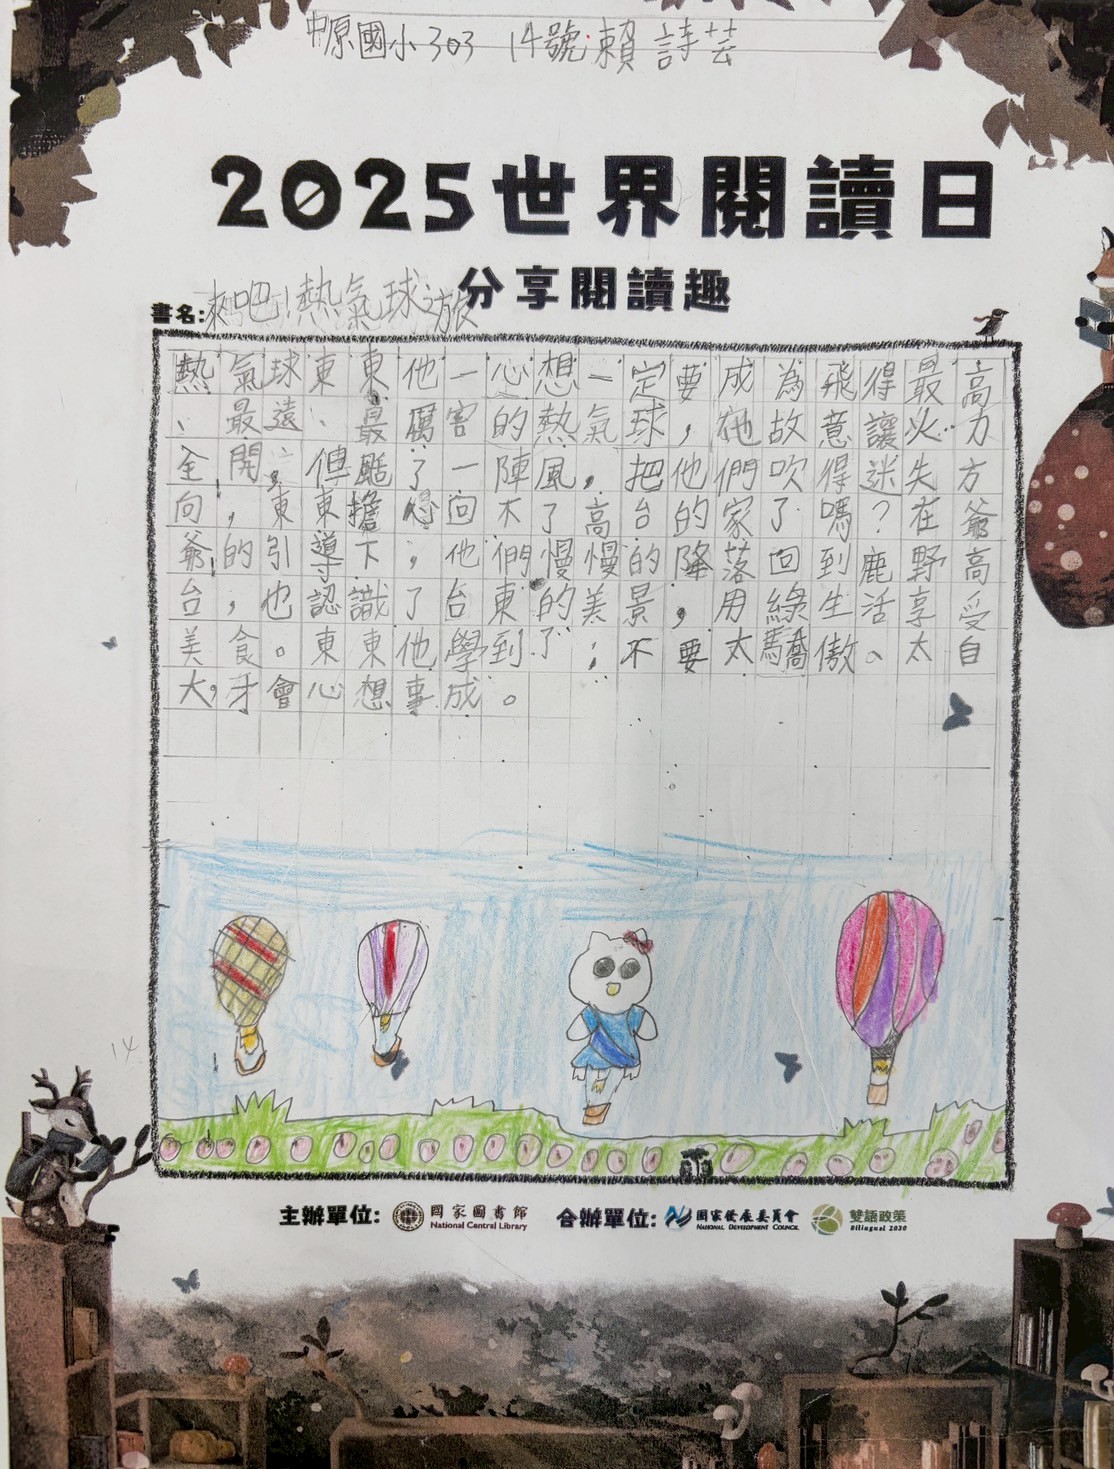 中原國小303 14號 賴詩芸
2025世界閱讀日
分享閱讀趣
書名:來吧!熱氣球之旅
熱氣球東東他一心想一定要成為飛得最高
、最遠、最厲害的熱氣球,在他故意讓火力
全開,傳颳了一陣風,把他們吹得迷失方
向,東東擔心回不了高台的家了嗎?在爺
爺的引導下,他們慢慢的降落回到鹿野高
台,也認識了台東的美景,用綠生活享受
美食。東東他學到了;不要太驕傲。太自
大,牙會心想事成。
14
主辦單位: 國家圖書館 National Central Library 合辦單位: 國家發展委員會 NATIONAL DEVELOPMENT COUNCIL 雙語政策 Bilingual 2030